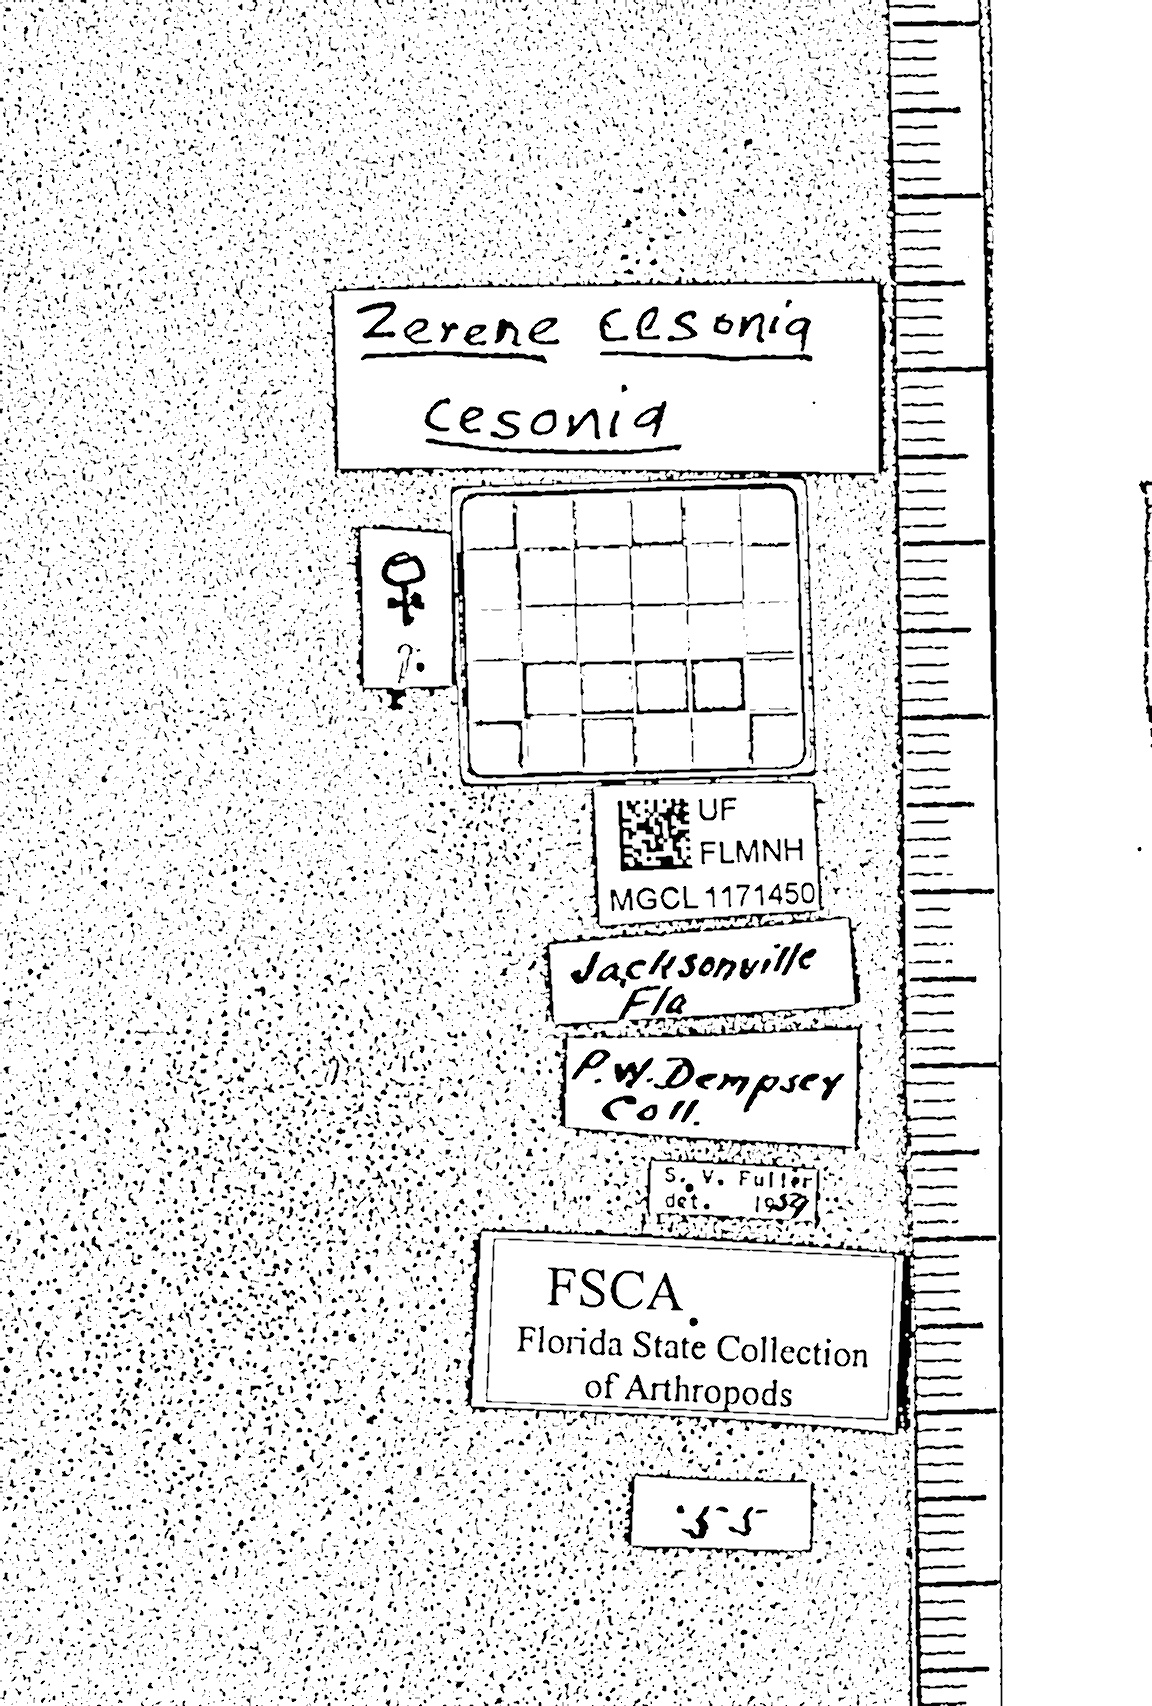 Zerene cesonia
cesonia
♀
?.
UF
FLMNH
MGCL 1171450
Jacksonville
Fla
P.W. Dempsey
Coll.
S. V. Fuller
det. 1959
FSCA
Florida State Collection
of Arthropods
'55